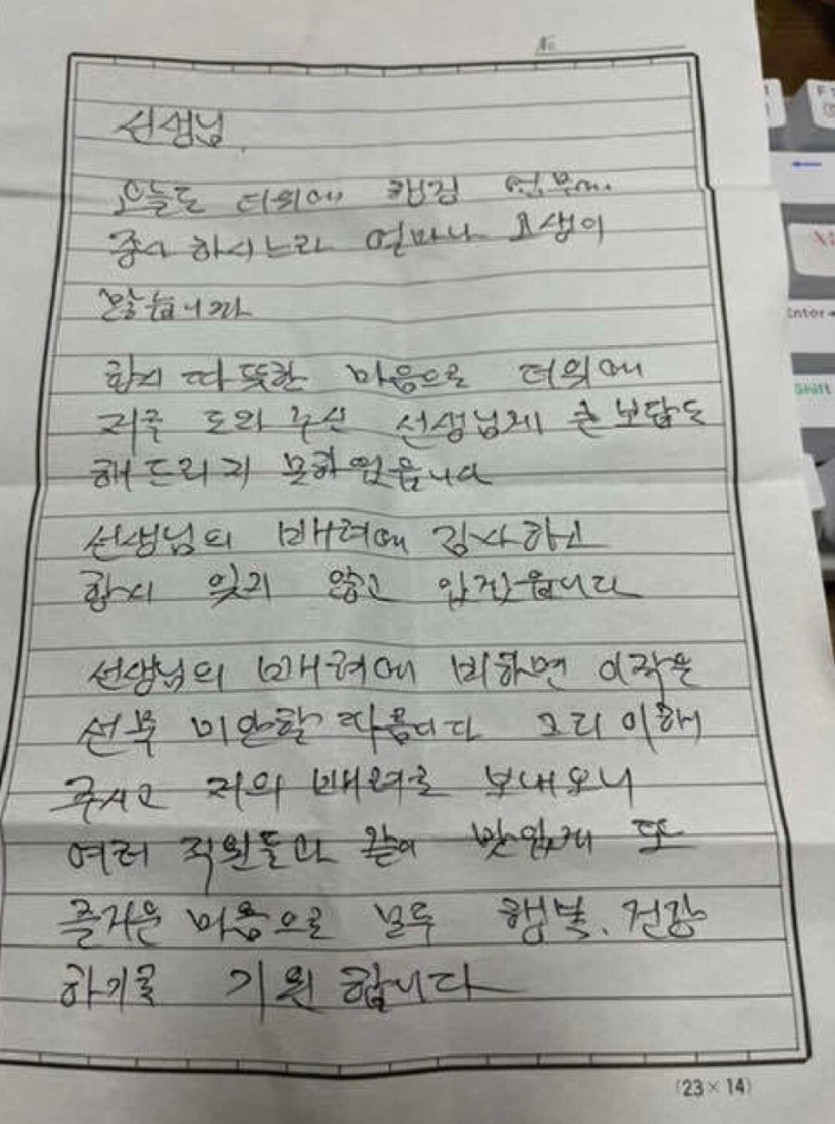 No
선생님.
오늘도 더위에 행정 업무에
종사 하시느라 얼마나 고생이
많습니까
항시 따뜻한 마음으로 더위에
저를 도와 주신 선생님께 큰 보답도
해드리지 못하였읍니다
선생님의 배려에 감사하고
항시 잊지 않고 있겠읍니다
선생님의 배려에 비하면 이작은
선물 미안할 따름이다 그리 이해
주시고 저의 배려로 보내오니
여러 직원들과 같이 맛있게 또
즐거운 마음으로 모두 행복. 건강
하기를 기원 합니다
(23×14)
Enter
Shift